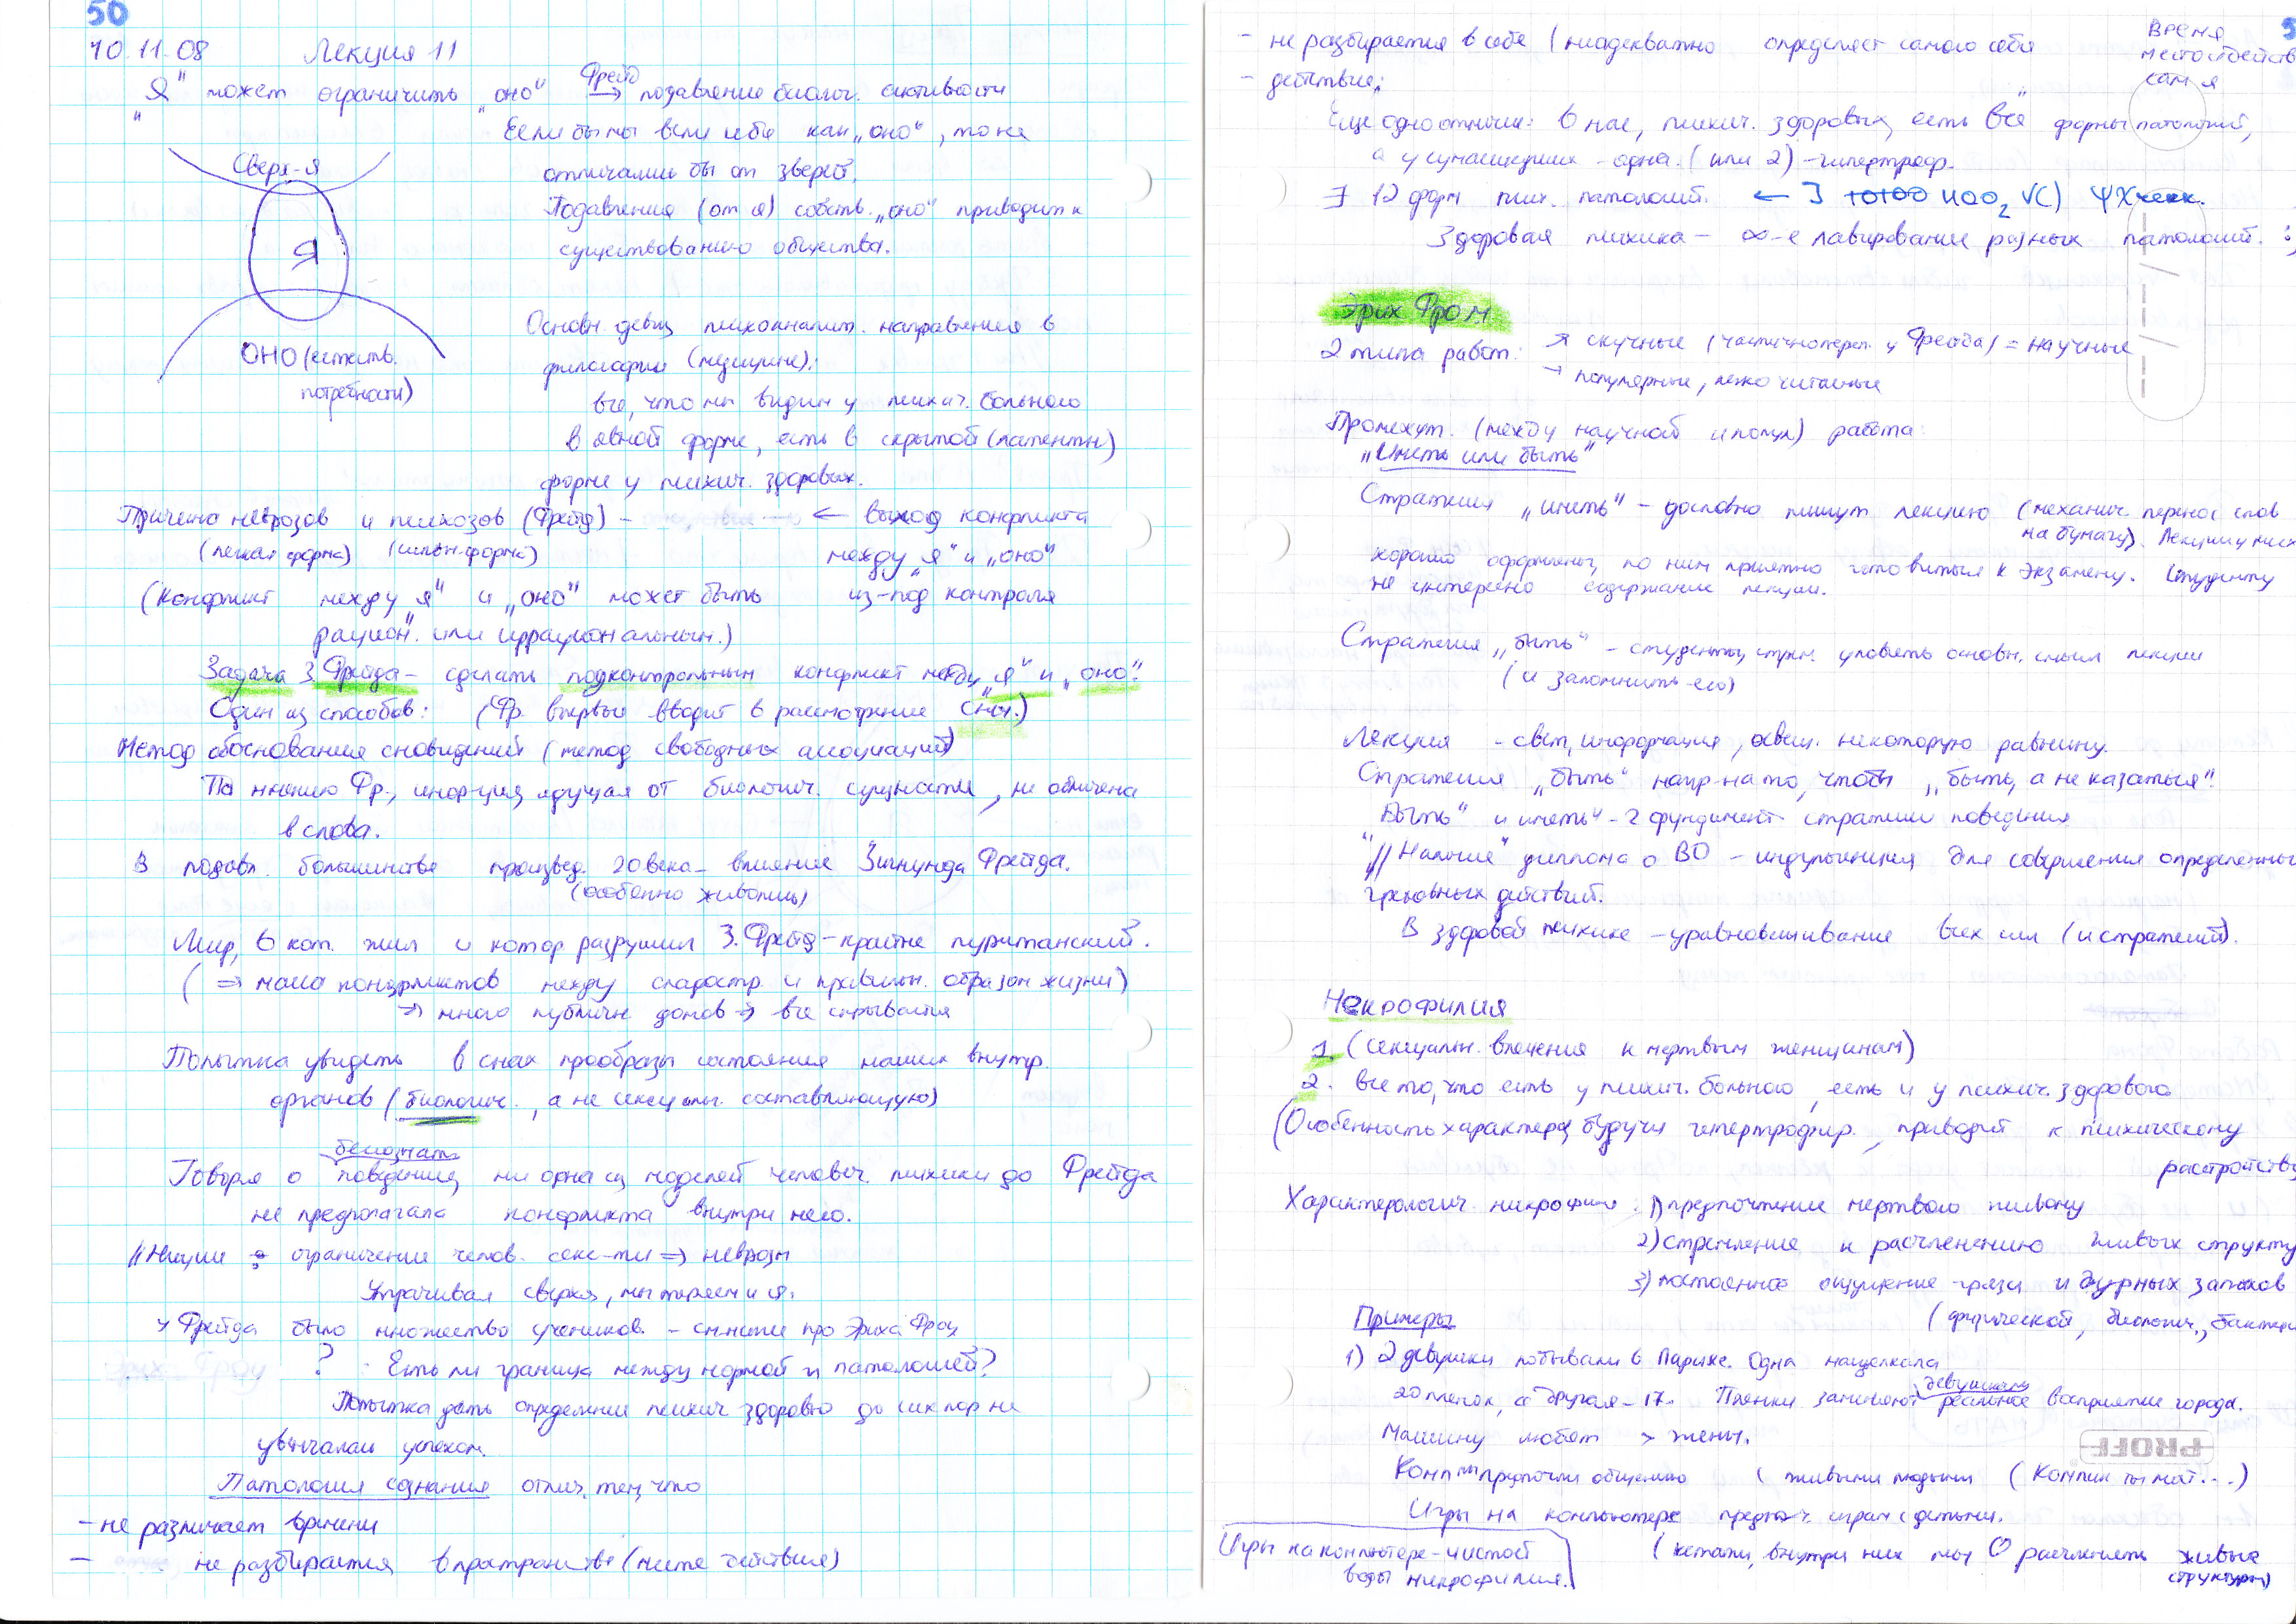 50
10.11.08 Лекция 11
"Я" может ограничить "оно" Фрейд → подавление биолог. активности
Если бы мы вели себя как "оно", то не
отличались бы от зверей.
Подавление (от я) собств. "оно" приводит к
существованию общества.
Сверх-Я
Я
ОНО (естеств.
потребности)
Основн. девиз психоаналит. направления в
философии (медицине):
все, что мы видим у психич. больного
в явной форме, есть в скрытой (латентн)
форме у психич. здоровых.
Причина неврозов и психозов (Фрейд) - ← выход конфликта
(легкая форма) между "я" и "оно"
(Конфликт между "я" и "оно" может быть из-под контроля
рацион. или иррациональным.)
Задача З. Фрейда - сделать подконтрольным конфликт между "я" и "оно".
Один из способов: (Фр. впервые вводит в рассмотрение сны.)
Метод обоснования сновидений (метод свободных ассоциаций)
По мнению Фр., инф-ция, идущая от биологич. сущности, не облечена
в слова.
В подавл. большинстве произвед. 20 века - влияние Зигмунда Фрейда.
(особенно живопись)
Мир, в кот. жил и котор разрушил З. Фрейд - крайне пуританский.
(⇒ масса конфликтов между сладостр. и правильн. образом жизни)
⇒ много публичн домов ⇒ все скрывается
Попытка увидеть в снах прообразы состояния наших внутр.
органов (биологич., а не сексуальн. составляющую)
бессознат.
Говоря о поведении, ни одна из моделей человеч. психики до Фрейда
не предполагала конфликта внутри него.
// Ницше: ограничение челов. секс-ти ⇒ неврозы
Утрачивая сверхя, мы теряем и я.
У Фрейда было множество учеников. - см. ниже про Эриха Фром
? Есть ли граница между нормой и патологией?
Попытка дать определение психич здоровью до сих пор не
увенчалась успехом.
Патология сознания отлич. тем, что
- не различает времени
- не разбирается в пространстве (месте действия)
- не разбирается в себе (неадекватно определяет самого себя
- действие;
Время
место действ
сам я
Еще одно отличие: в нас, психич. здоровых, есть все формы патологий,
а у сумасшедших - одна. (или 2) - гипертроф.
∃ 12 форм псих. патологий. ←
Здоровая психика - ∞-е лавирование разных патологий. :)
Эрих Фром
2 типа работ: → скучные (частично переп. у Фрейда) = научные
→ популярные, легко читаемые
Промежут. (между научной и попул) работа:
"Иметь или быть"
Стратегия "иметь" - дословно пишут лекцию (механич. перенос слов
на бумагу). Лекции у них
хорошо оформлены, по ним приятно готовиться к экзамену. Студенту
не интересно содержание лекции.
Стратегия "быть" - студенты, стрем. уловить основн. смысл лекции
(и запомнить его)
Лекция - свет, информация, освещ. некоторую равнину.
Стратегия "быть" напр на то, чтобы "быть, а не казаться".
"Быть" и "иметь" - 2 фундамент стратегии поведения
// "Наличие" диплома о ВО - индульгенция для совершения определенных
греховных действий.
В здоровой психике - уравновешивание всех сил (и стратегий).
Некрофилия
1. (сексуальн. влечения к мертвым женщинам)
2. все то, что есть у психич. больного, есть и у психич. здорового
(Особенность характера, будучи гипертрофир., приводит к психическому
расстройству
Характерологич. некрофил: 1) предпочтение мертвого живому
2) стремление к расчленению живых структу
3) постоянное ощущение грязи и дурных запахов
(физической, биологич., бактери
Примеры
1) 2 девушки побывали в Париже. Одна нащелкала
20 пленок, а другая - 17. Пленки заменяют девушкам реальное восприятие города.
Машину любят > жены.
Комп предпочли общению с живыми людьми
Игры на компьютере предпоч. играм с детьми.
Игры на компьютере - чистой
воды некрофилия.
(кстати, внутри них мы ♡ расчленять живые
структуры)
PROFF